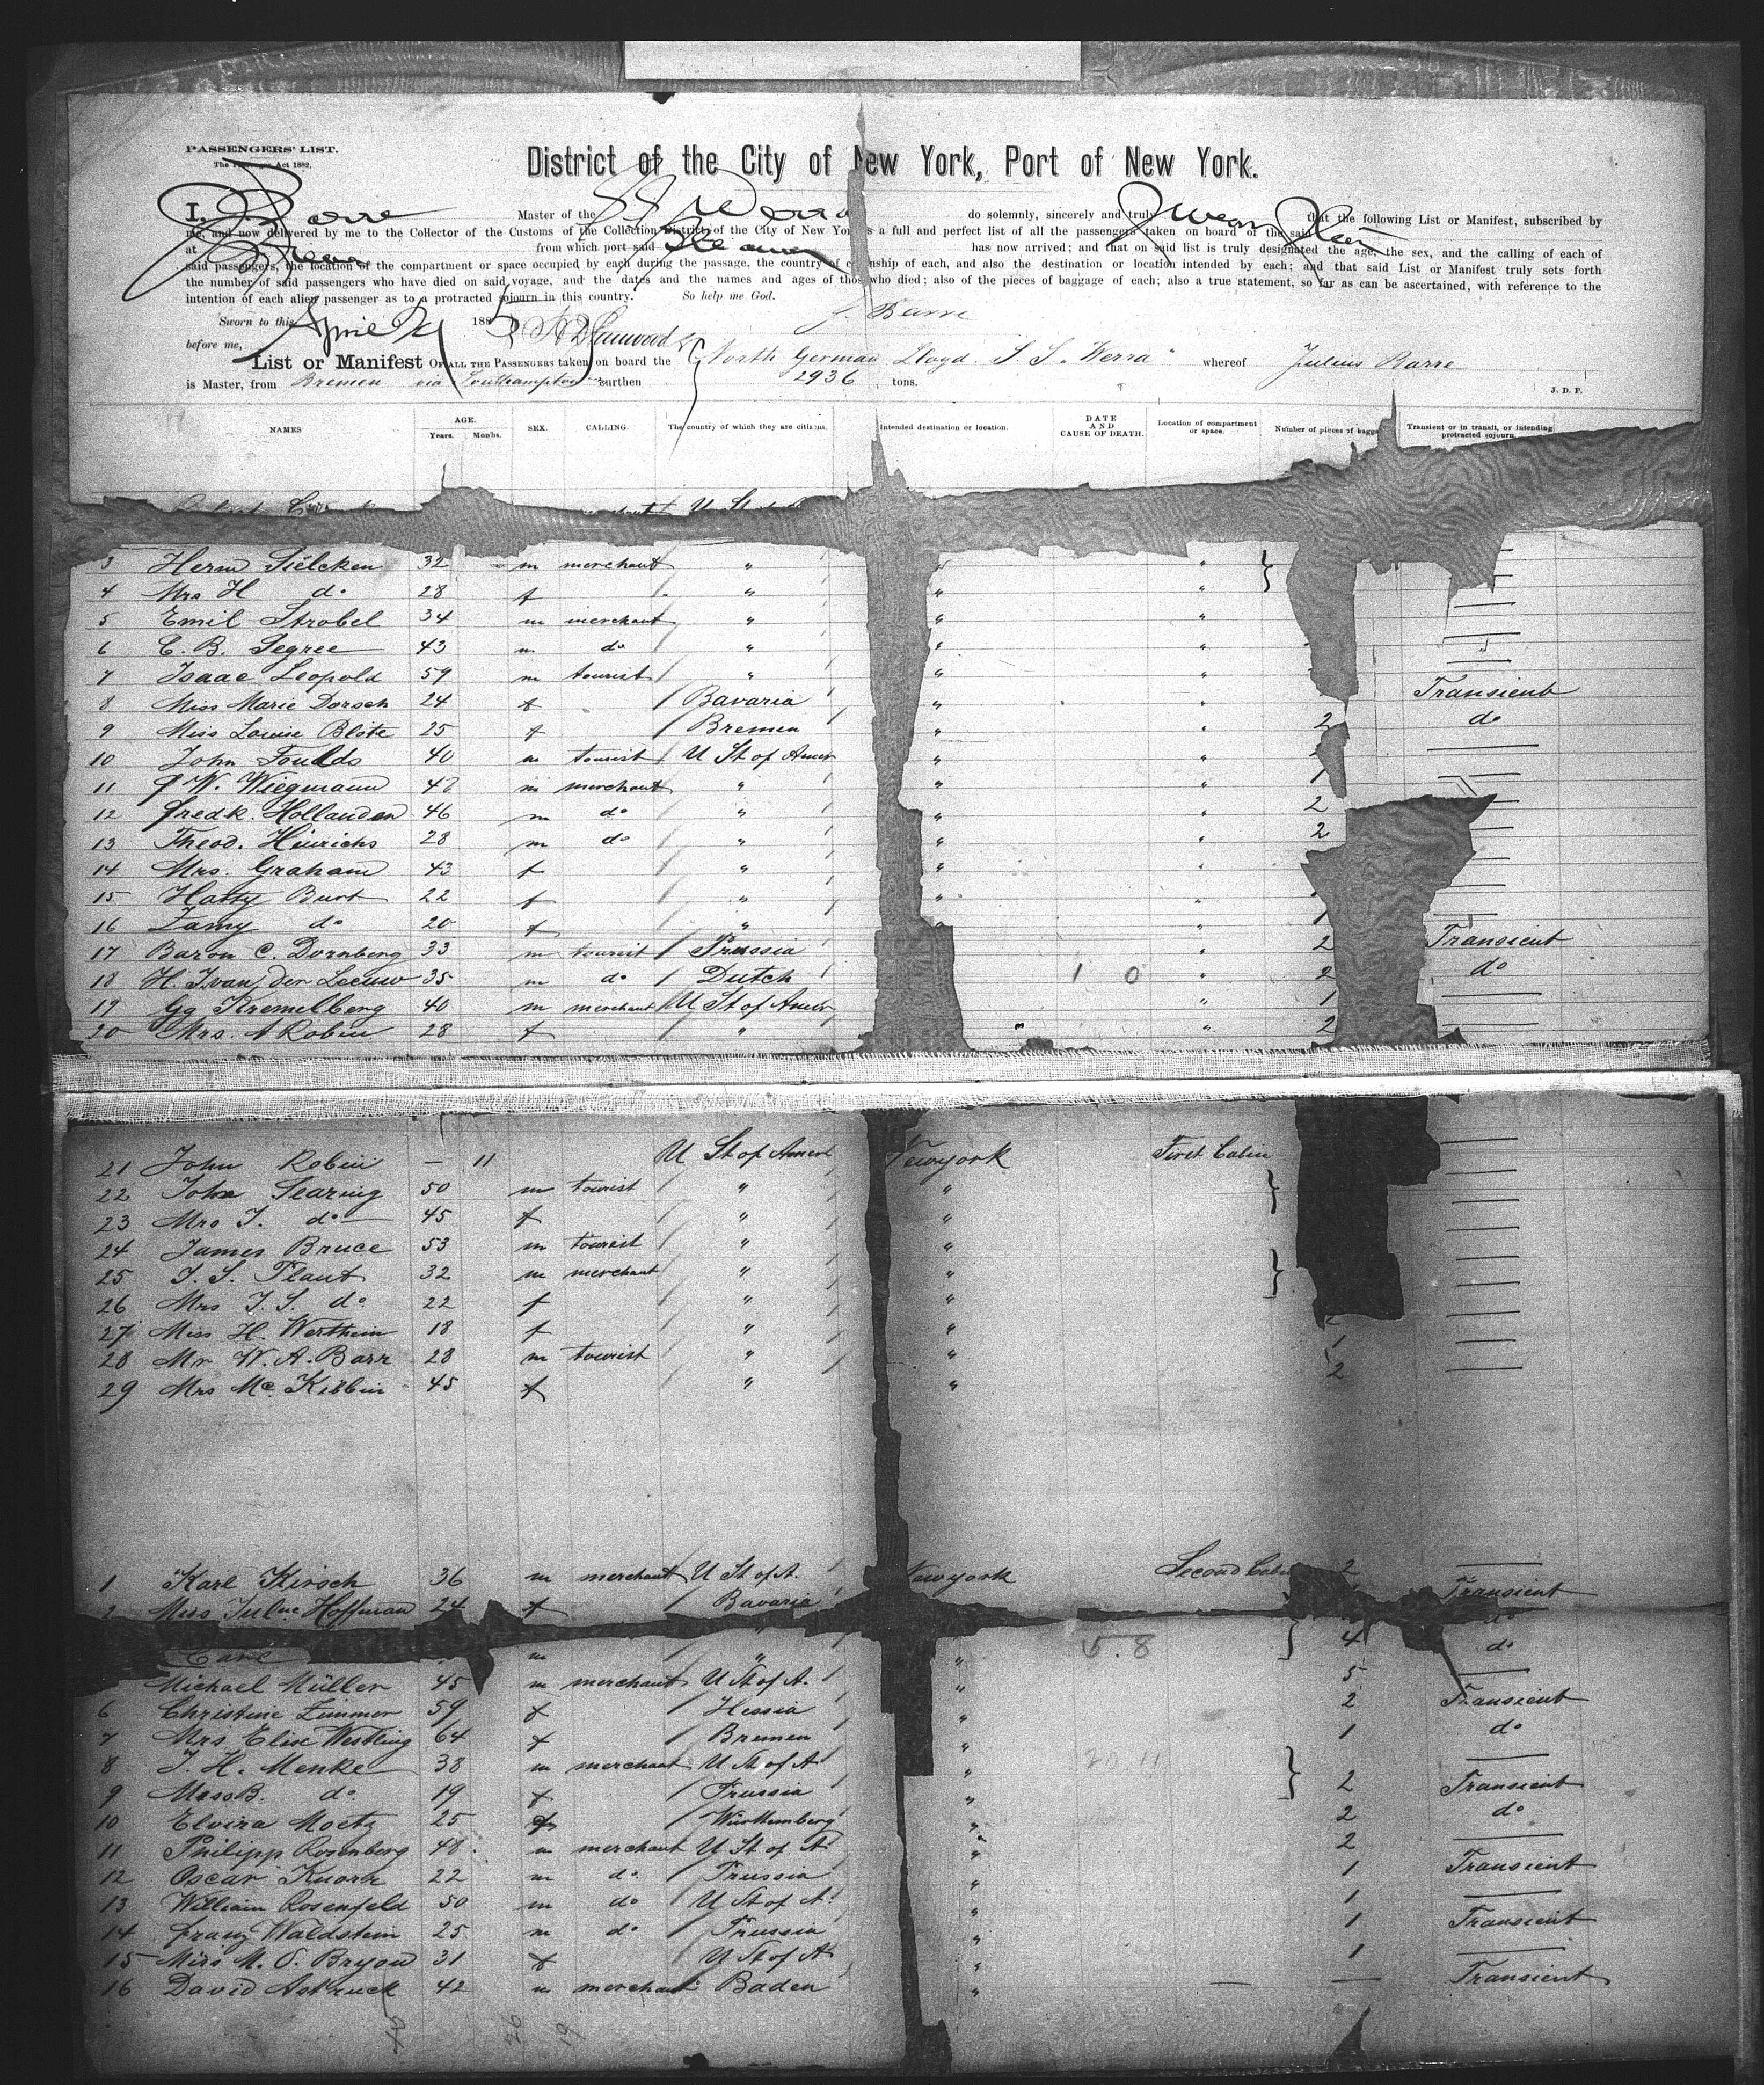 PASSENGERS' LIST.
The Passenger Act 1882.
District of the City of New York, Port of New York.
I, J. Barre Master of the SS Werra do solemnly, sincerely and truly swear that the following List or Manifest, subscribed by
me, and now delivered by me to the Collector of the Customs of the Collection District of the City of New York is a full and perfect list of all the passengers taken on board of the said
at Bremen from which port said Steamer has now arrived; and that on said list is truly designated the age, the sex, and the calling of each of
said passengers, the location of the compartment or space occupied by each during the passage, the country of citizenship of each, and also the destination or location intended by each; and that said List or Manifest truly sets forth
the number of said passengers who have died on said voyage, and the dates and the names and ages of those who died; also of the pieces of baggage of each; also a true statement, so far as can be ascertained, with reference to the
intention of each alien passenger as to a protracted sojourn in this country. So help me God.
Sworn to this April 188 J. Barre
before me,
List or Manifest OF ALL THE PASSENGERS taken on board the North German Lloyd. S. S. "Werra" whereof Julius Barre
is Master, from Bremen via Southampton burthen 2936 tons.
J. D. P.
NAMES AGE. Years. Months. SEX. CALLING. The country of which they are citizens. Intended destination or location. DATE AND CAUSE OF DEATH. Location of compartment or space. Number of pieces of baggage Transient or in transit, or intending protracted sojourn.
3 Herm Sielcken 32 m merchant " " "
4 Mrs H do 28 f " " "
5 Emil Strobel 34 m merchant " " "
6 C. B. Segree 43 m do " " "
7 Isaac Leopold 59 m tourist " " "
8 Miss Marie Dorsch 24 f Bavaria " " Transient
9 Miss Louise Blöte 25 f Bremen " " 2 do
10 John Foulds 40 m tourist U St of Amer " "
11 F W. Wiegmann 48 m merchant " " " 1
12 Fredk. Hollanden 46 m do " " " 2
13 Theod. Hinrichs 28 m do " " " 2
14 Mrs. Graham 43 f " " "
15 Hatty Burt 22 f " " "
16 Zamy do 20 f " " 1
17 Baron C. Dornberg 33 m tourist Prussia " 2 Transient
18 H. J. van der Leeuw 35 m do Dutch 1 0 " 2 do
19 Gg Kremelberg 40 m merchant U St of Amer " 1
20 Mrs. A Robin 28 f " " " 2
21 John Robin — 11 U St of Amer Newyork First Cabin
22 John Searing 50 m tourist " "
23 Mrs J. do 45 f " "
24 James Bruce 53 m tourist " "
25 J. S. Plaut 32 m merchant " "
26 Mrs J. S. do 22 f " "
27 Miss H. Wertheim 18 f " " 2
28 Mr W. A. Barr 28 m tourist " " 1
29 Mrs Mc. Kibbin 45 f " " 2
1 Karl Kirsch 36 m merchant U St of A. Newyork Second Cabin 2
2 Miss Juline Hoffman 24 f Bavaria Transient
do
Carl m " " 15.8 4 do
Michael Müller 45 m merchant U St of A. " 5
6 Christine Zimmer 59 f Hessia " 2 Transient
7 Mrs Elise Westling 64 f Bremen " 1 do
8 J. H. Menke 38 m merchant U St of A " 20 11
9 Miss B. do 19 f Prussia " 2 Transient
10 Elvira Moetz 25 f Württemberg " 2 do
11 Philipp Rosenberg 48 m merchant U St of A " 2
12 Oscar Knorr 22 m do Prussia " 1 Transient
13 William Rosenfeld 50 m do U St of A. " 1
14 Franz Waldstein 25 m do Prussia " 1 Transient
15 Miss M. O. Bryon 31 f U St of A " 1
16 David Astruck 42 m merchant Baden " — — Transient
20 19